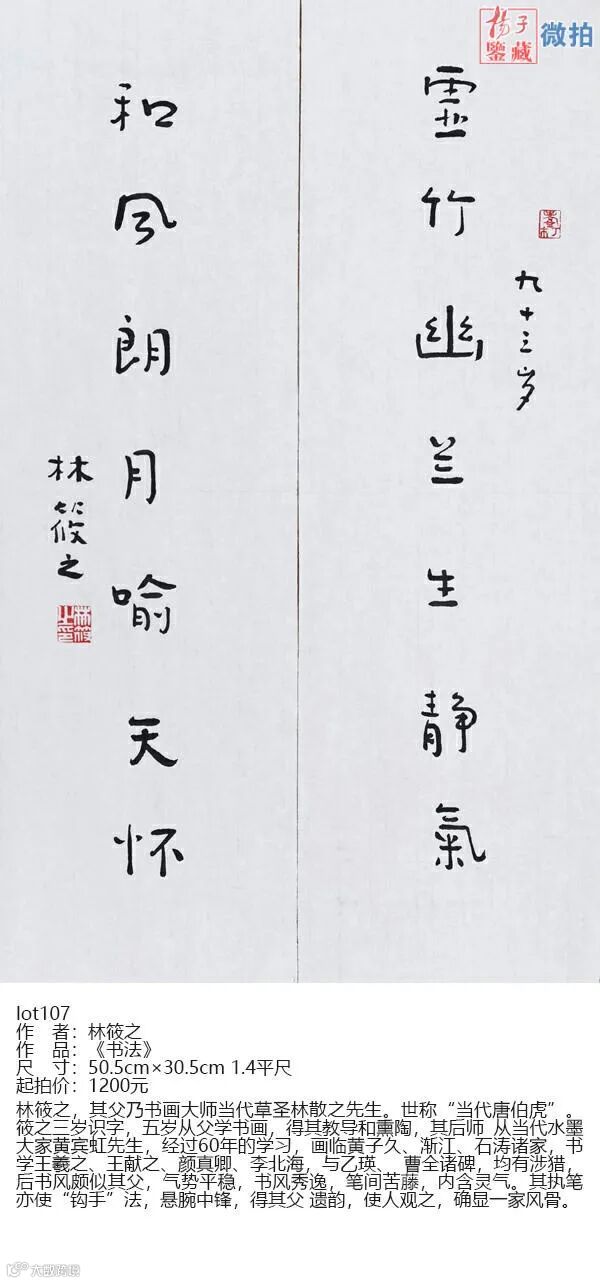 揚子鑒藏
微拍
靈竹幽兰生静氣
九十三岁
和风朗月喻天怀
林筱之
林筱之印
lot107
作 者：林筱之
作 品：《书法》
尺 寸：50.5cm×30.5cm 1.4平尺
起拍价：1200元
林筱之，其父乃书画大师当代草圣林散之先生。世称“当代唐伯虎”。
筱之三岁识字，五岁从父学书画，得其教导和熏陶，其后师 从当代水墨
大家黄宾虹先生，经过60年的学习，画临黄子久、渐江、石涛诸家，书
学王羲之、王献之、颜真卿、李北海，与乙瑛、 曹全诸碑，均有涉猎，
后书风颇似其父，气势平稳，书风秀逸，笔间苦藤，内含灵气。其执笔
亦使“钩手”法，悬腕中锋，得其父 遗韵，使人观之，确显一家风骨。
大数跨境